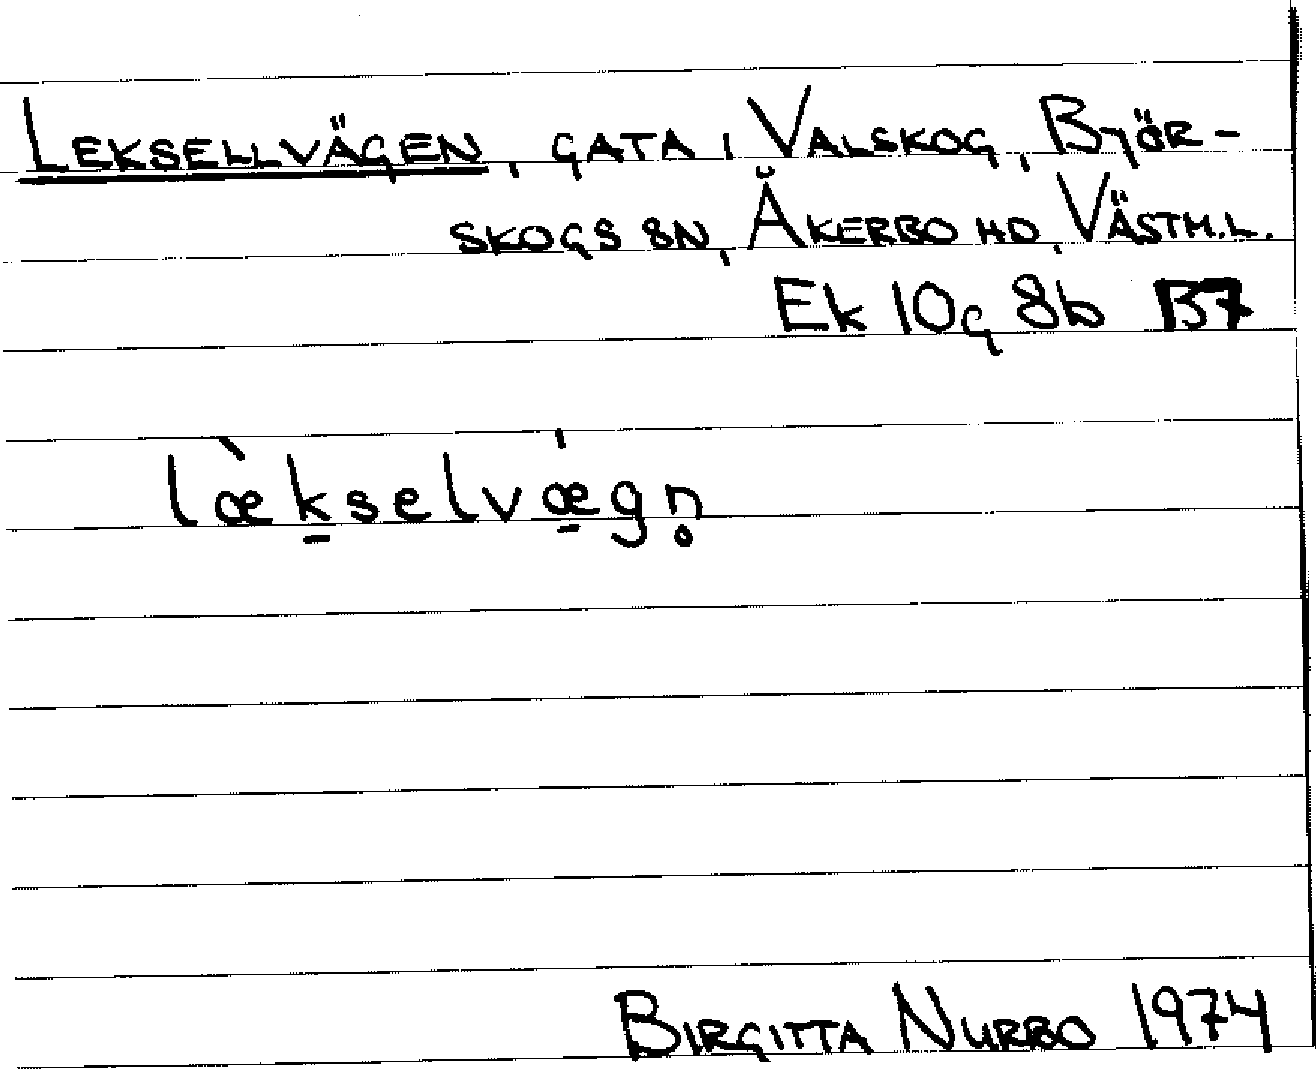 LEKSELLVÄGEN, GATA I VALSKOG, BJÖR-
SKOGS SN, ÅKERBO HD, VÄSTM.L.
Ek 10g 8b B7
l̀æk̲selvǽ̲gn̥
BIRGITTA NURBO 1974